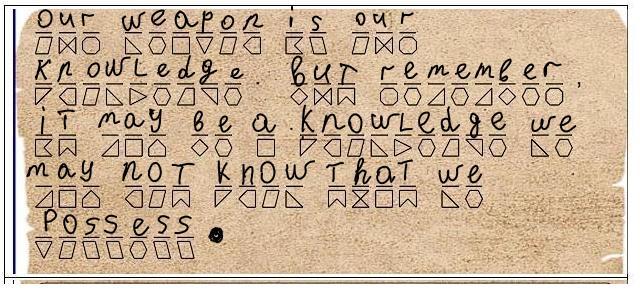 our weapon is our
knowledge. but remember,
it may be a knowledge we
may not know that we
possess.